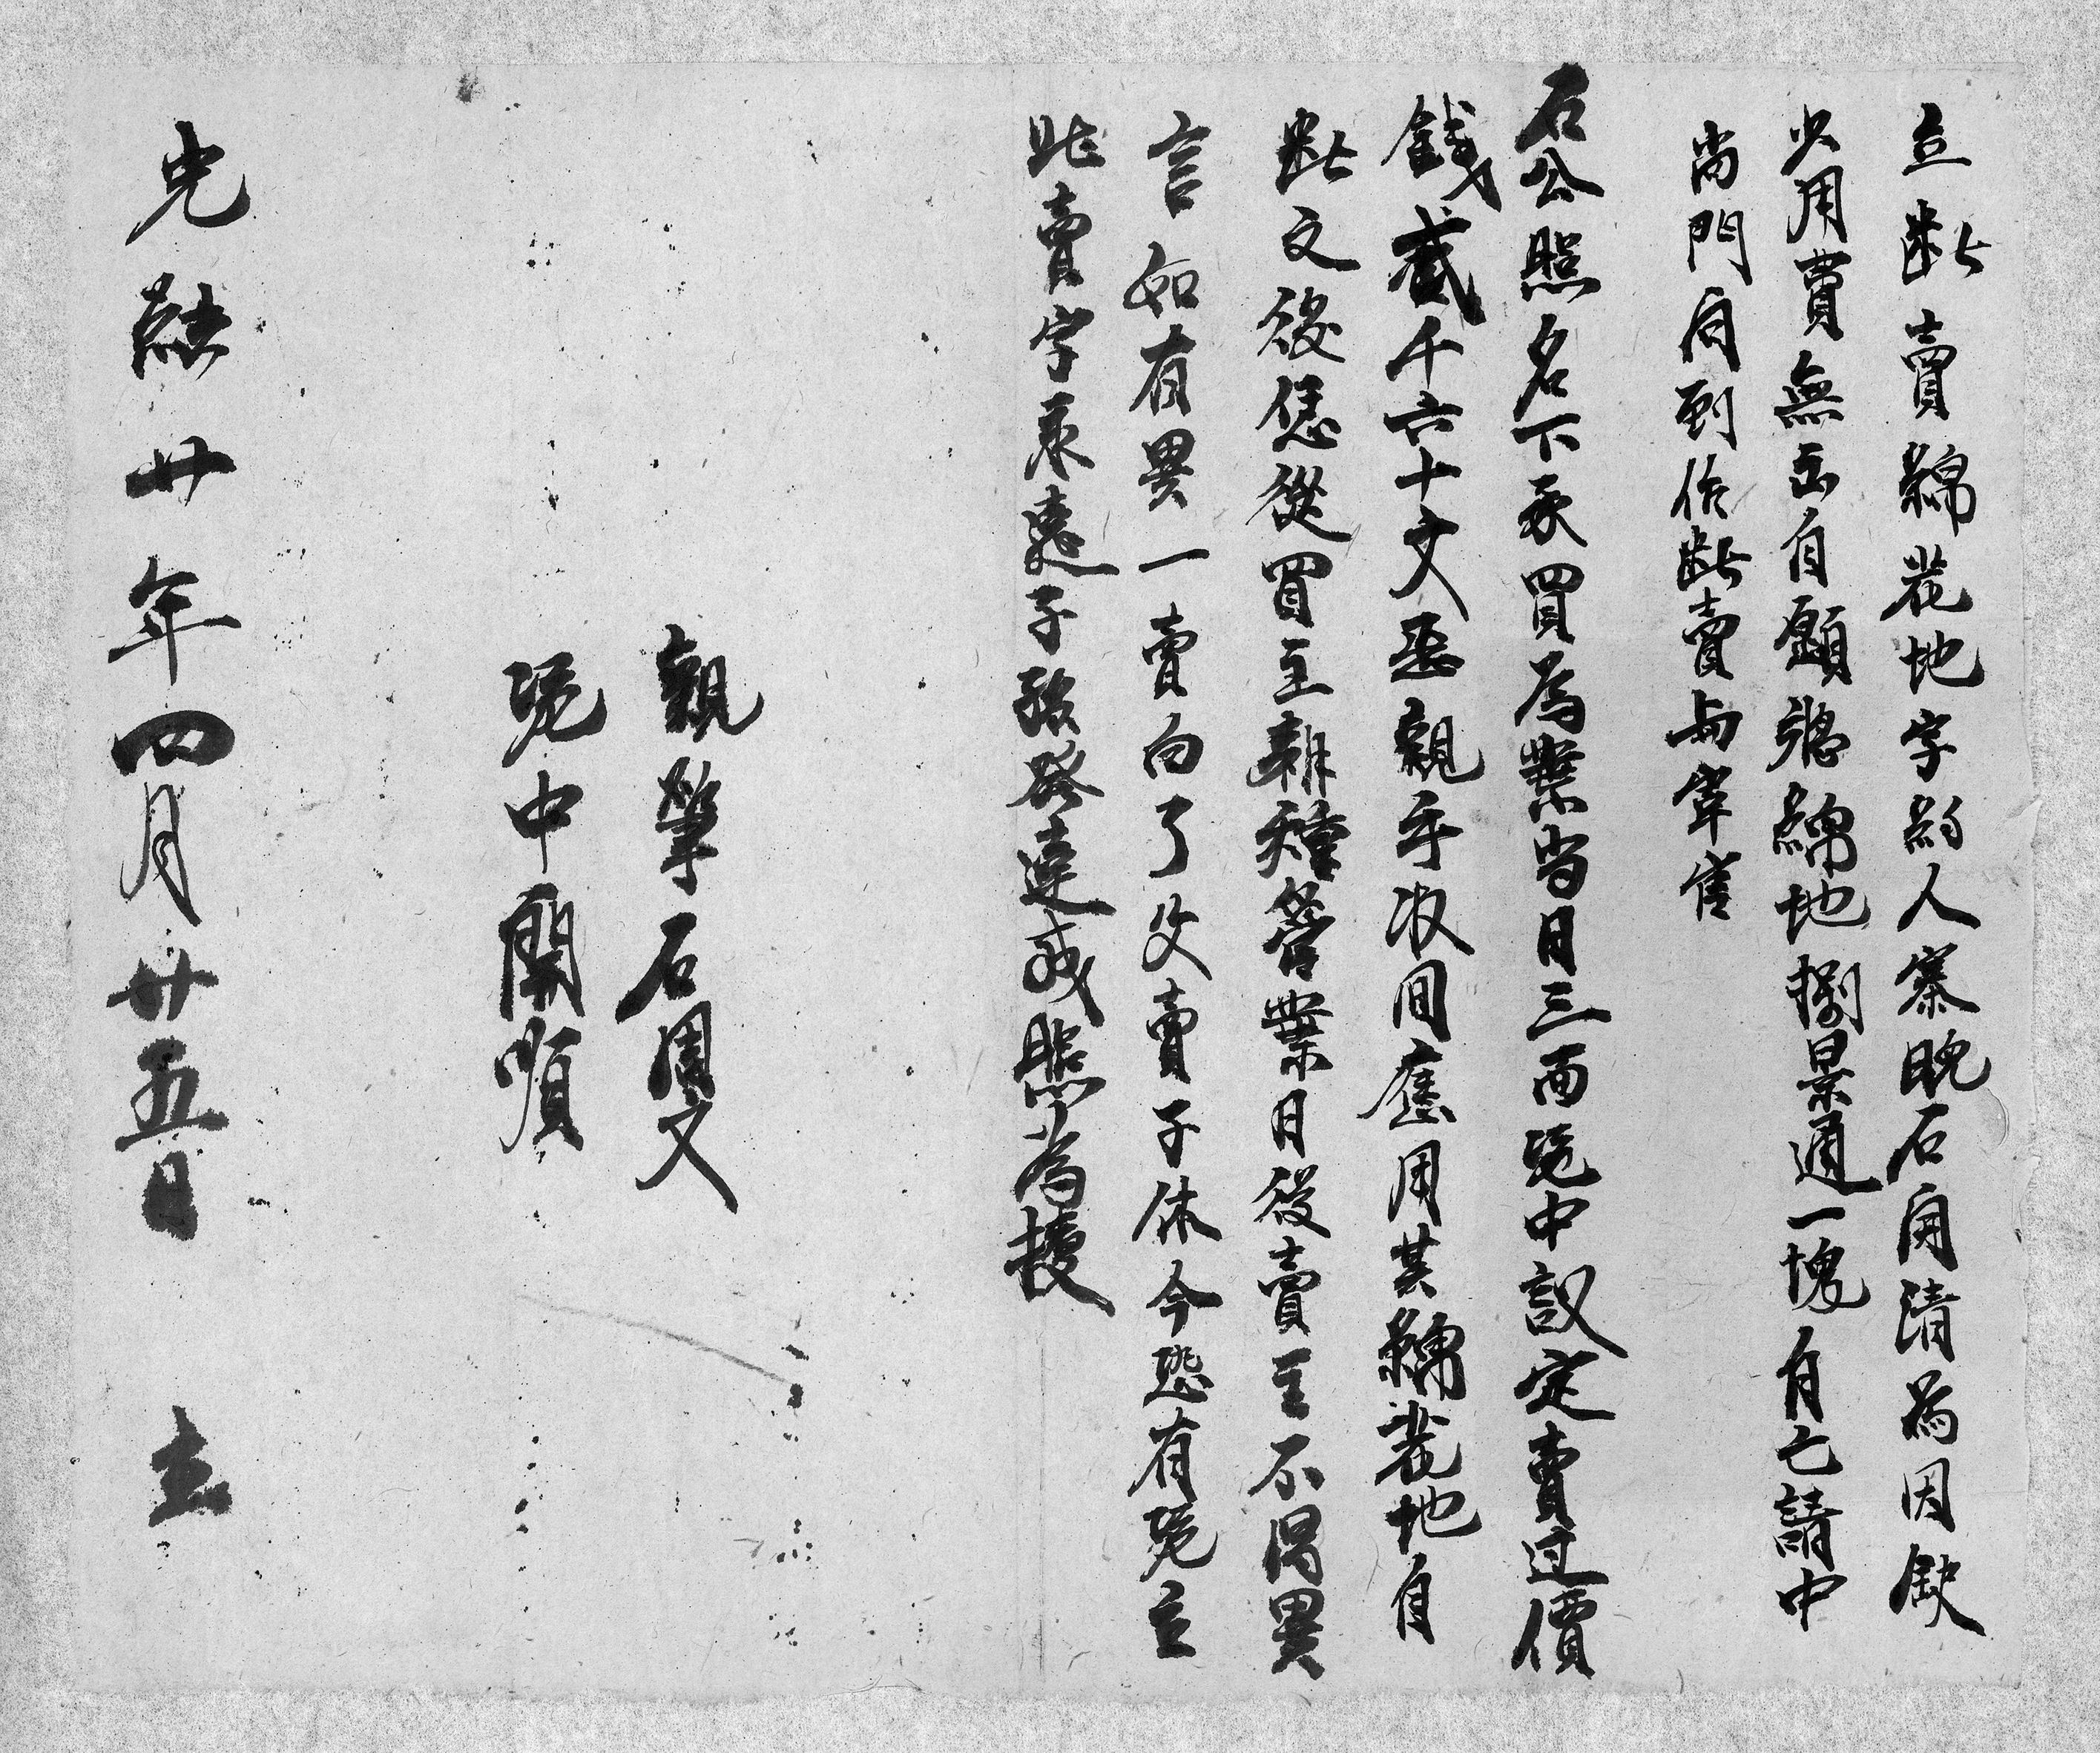 立断賣綿花地字約人寨晚石開清為因缺
少用費無出自願將綿地捌景通一塊自己請中
尚門向到作断賣与宰售
石公照名下承買為業当日三面凭中議定賣过價
錢貳千六十文正親手收回應用其綿花地自
断之後恁從買主耕種管業日後賣主不得異
言如有異一賣向了父賣子休今恐有凭立
此賣字承遠子孫發達或照為據
親筆石開文
凭中開順
光緒廿年四月廿五日 立